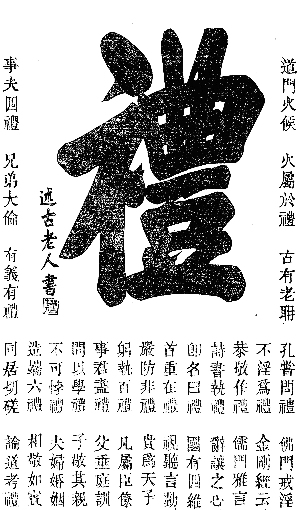 禮
道門火候 火屬於禮 古有老聃
孔嘗問禮 佛門戒淫
不淫爲禮 金剛經云
恭敬作禮 儒門雅言
詩書執禮 辭讓之心
即名曰禮 國有四維
首重在禮 視聽言動
嚴防非禮 貴爲天子
躬執百禮 凡屬臣僚
事君盡禮 父垂庭訓
問以學禮 子敬其親
不可悖禮 夫婦婚姻
造端六禮 相敬如賓
事夫四禮 兄弟大倫 有義有禮
同居切磋 論道考禮
述古老人書